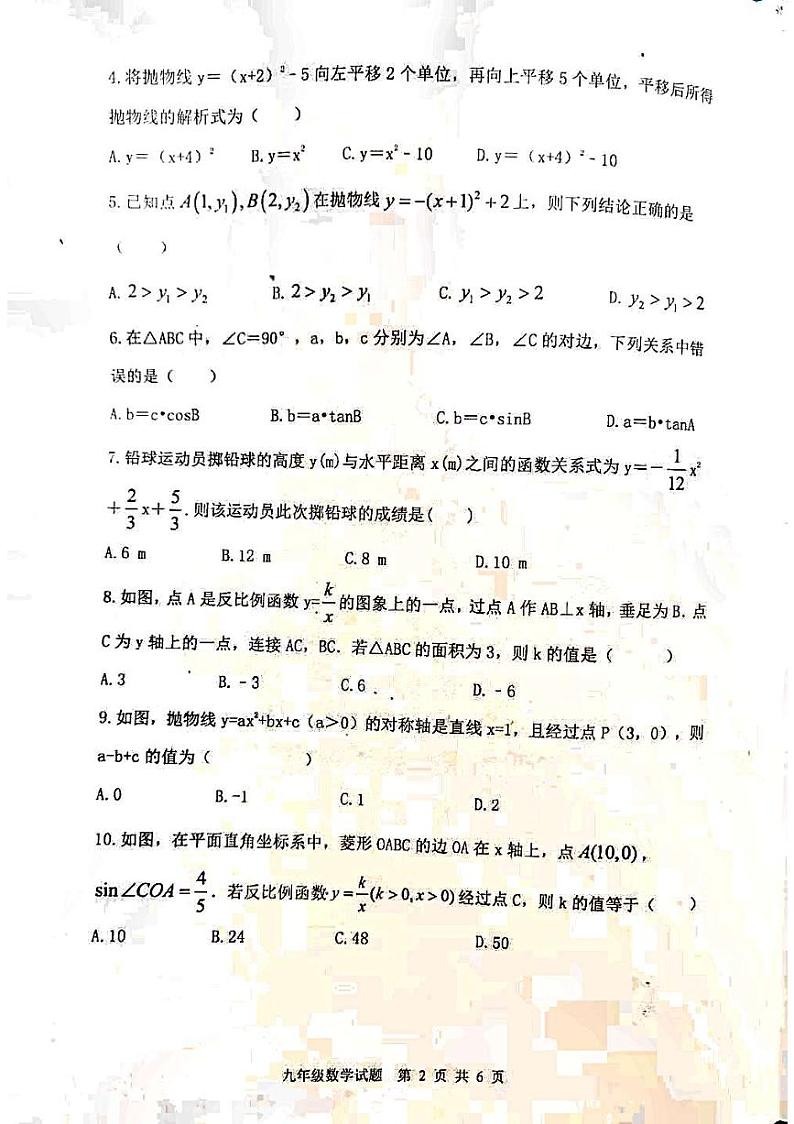 4.将抛物线 y=（x+2）²-5 向左平移 2 个单位，再向上平移 5 个单位，平移后所得
抛物线的解析式为（  ）
A.y=（x+4）² B.y=x² C.y=x²-10 D.y=（x+4）²-10
5.已知点 A(1,y₁),B(2,y₂)在抛物线 y=-(x+1)²+2 上，则下列结论正确的是
（  ）
A. 2>y₁>y₂ B. 2>y₂>y₁ C. y₁>y₂>2 D. y₂>y₁>2
6.在△ABC 中，∠C=90°，a，b，c 分别为∠A，∠B，∠C 的对边，下列关系中错
误的是（  ）
A.b=c•cosB B.b=a•tanB C.b=c•sinB D.a=b•tanA
7.铅球运动员掷铅球的高度 y(m)与水平距离 x(m)之间的函数关系式为 y=-1/12 x²
+2/3 x+5/3.则该运动员此次掷铅球的成绩是(  )
A.6 m B.12 m C.8 m D.10 m
8.如图，点 A 是反比例函数 y=k/x 的图象上的一点，过点 A 作 AB⊥x 轴，垂足为 B.点
C 为 y 轴上的一点，连接 AC，BC．若△ABC 的面积为 3，则 k 的值是（  ）
A.3 B.-3 C.6 D.-6
9.如图，抛物线 y=ax²+bx+c（a＞0）的对称轴是直线 x=1，且经过点 P（3，0），则
a-b+c 的值为（  ）
A.0 B.-1 C.1 D.2
10.如图，在平面直角坐标系中，菱形 OABC 的边 OA 在 x 轴上，点 A(10,0)，
sin∠COA=4/5．若反比例函数 y=k/x(k>0,x>0)经过点 C，则 k 的值等于（  ）
A.10 B.24 C.48 D.50
九年级数学试题 第 2 页 共 6 页